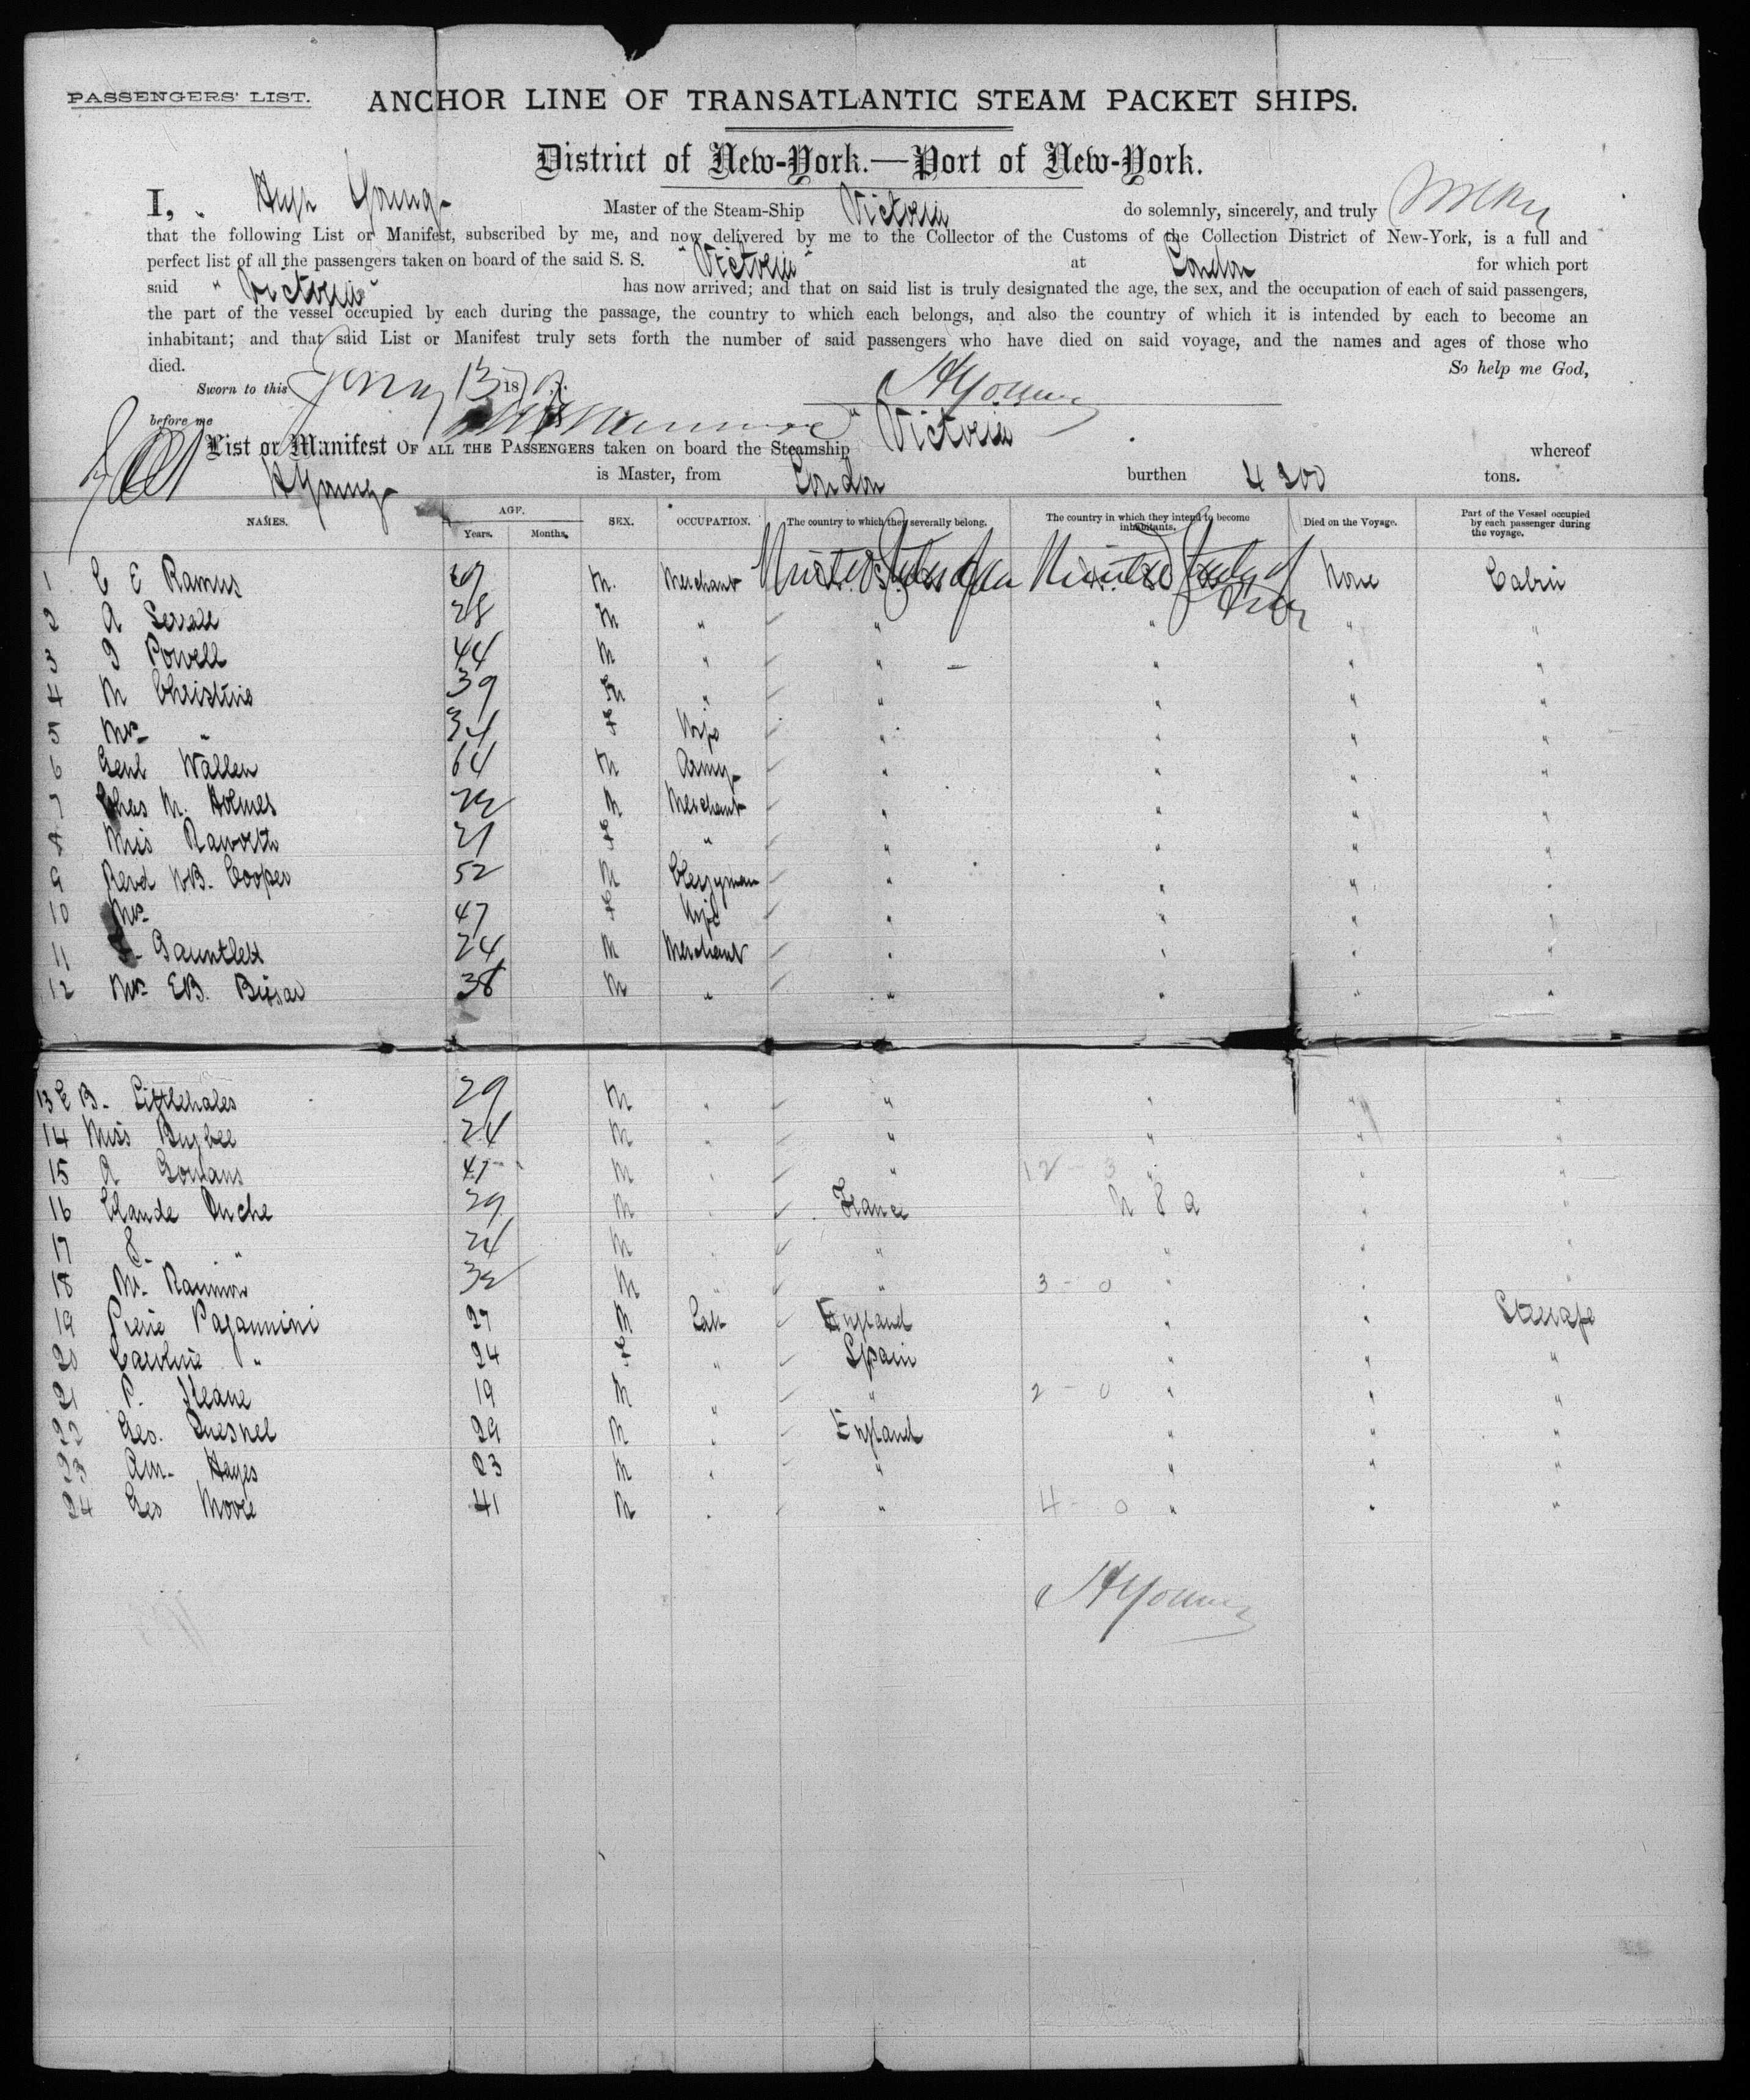 PASSENGERS' LIST.
ANCHOR LINE OF TRANSATLANTIC STEAM PACKET SHIPS.
District of New-York.—Port of New-York.
I, " Hugh Young Master of the Steam-Ship Victoria do solemnly, sincerely, and truly swear
that the following List or Manifest, subscribed by me, and now delivered by me to the Collector of the Customs of the Collection District of New-York, is a full and
perfect list of all the passengers taken on board of the said S. S. "Victoria" at London for which port
said "Victoria" has now arrived; and that on said list is truly designated the age, the sex, and the occupation of each of said passengers,
the part of the vessel occupied by each during the passage, the country to which each belongs, and also the country of which it is intended by each to become an
inhabitant; and that said List or Manifest truly sets forth the number of said passengers who have died on said voyage, and the names and ages of those who
died. So help me God,
Sworn to this 13 18 HYoung
before me
List or Manifest OF ALL THE PASSENGERS taken on board the Steamship "Victoria whereof
HYoung is Master, from London burthen 4 200 tons.
NAMES. AGE. Years. Months. SEX. OCCUPATION. The country to which they severally belong. The country in which they intend to become inhabitants. Died on the Voyage. Part of the Vessel occupied by each passenger during the voyage.
1 C E Ramus M. Merchant United States of United States of None Cabin
2 A 28 M " " " " "
3 J Powell 44 M " " " " "
4 M Christine 39 M " " " " "
5 Mrs " 34 f Wife " " " "
6 Genl Wallen 64 M Army " " " "
7 Chas M. Holmes 22 M Merchant " " " "
8 Miss Raworth 21 f " " " " "
9 Revd WB. Cooper 52 M Clergyman " " " "
10 Mrs 47 f Wife " " " "
11 Gauntlett 24 M Merchant " " " "
12 Mr EB. 38 M " " " " "
13 E B. Littlehales 29 M " " " " "
14 Miss Bugbee 24 M " " " " "
15 A Gowans M " " 12 - 3 " " "
16 Claude Duche 29 M " France U S a " "
17 S. " 24 M " " " " "
18 M. 32 M " " 3 - 0 " " "
19 Pierre Pagannini 27 M Lab England " " Steerage
20 Caroline " 24 f " Spain " " "
21 P. 19 M " " 2 - 0 " " "
22 Geo. Quesnel 29 M " England " " "
23 Am. Hayes 23 M " " " " "
24 Geo Moore 41 M " " 4 - 0 " " "
HYoung